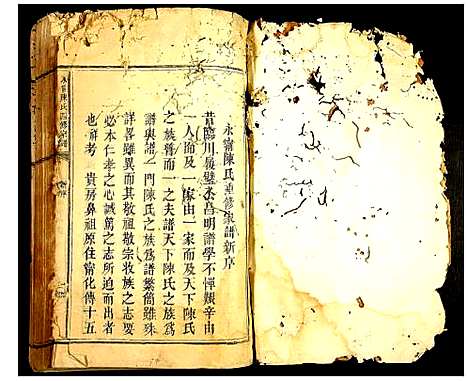 永甯陳氏重修家譜新序
昔臨川展璧水昌明譜學不憚艱辛由
一人而及一家由一家而及天下陳氏
之族尊而一之夫譜天下陳氏之族為
譜與譜一門陳氏之族為譜繁簡雖殊
詳畧雖異而其敬祖敬宗收族之志要
必本仁孝之心誠篤之志所迫而出者
也 考 貴房鼻祖原住甯化傳十五
陳氏 修